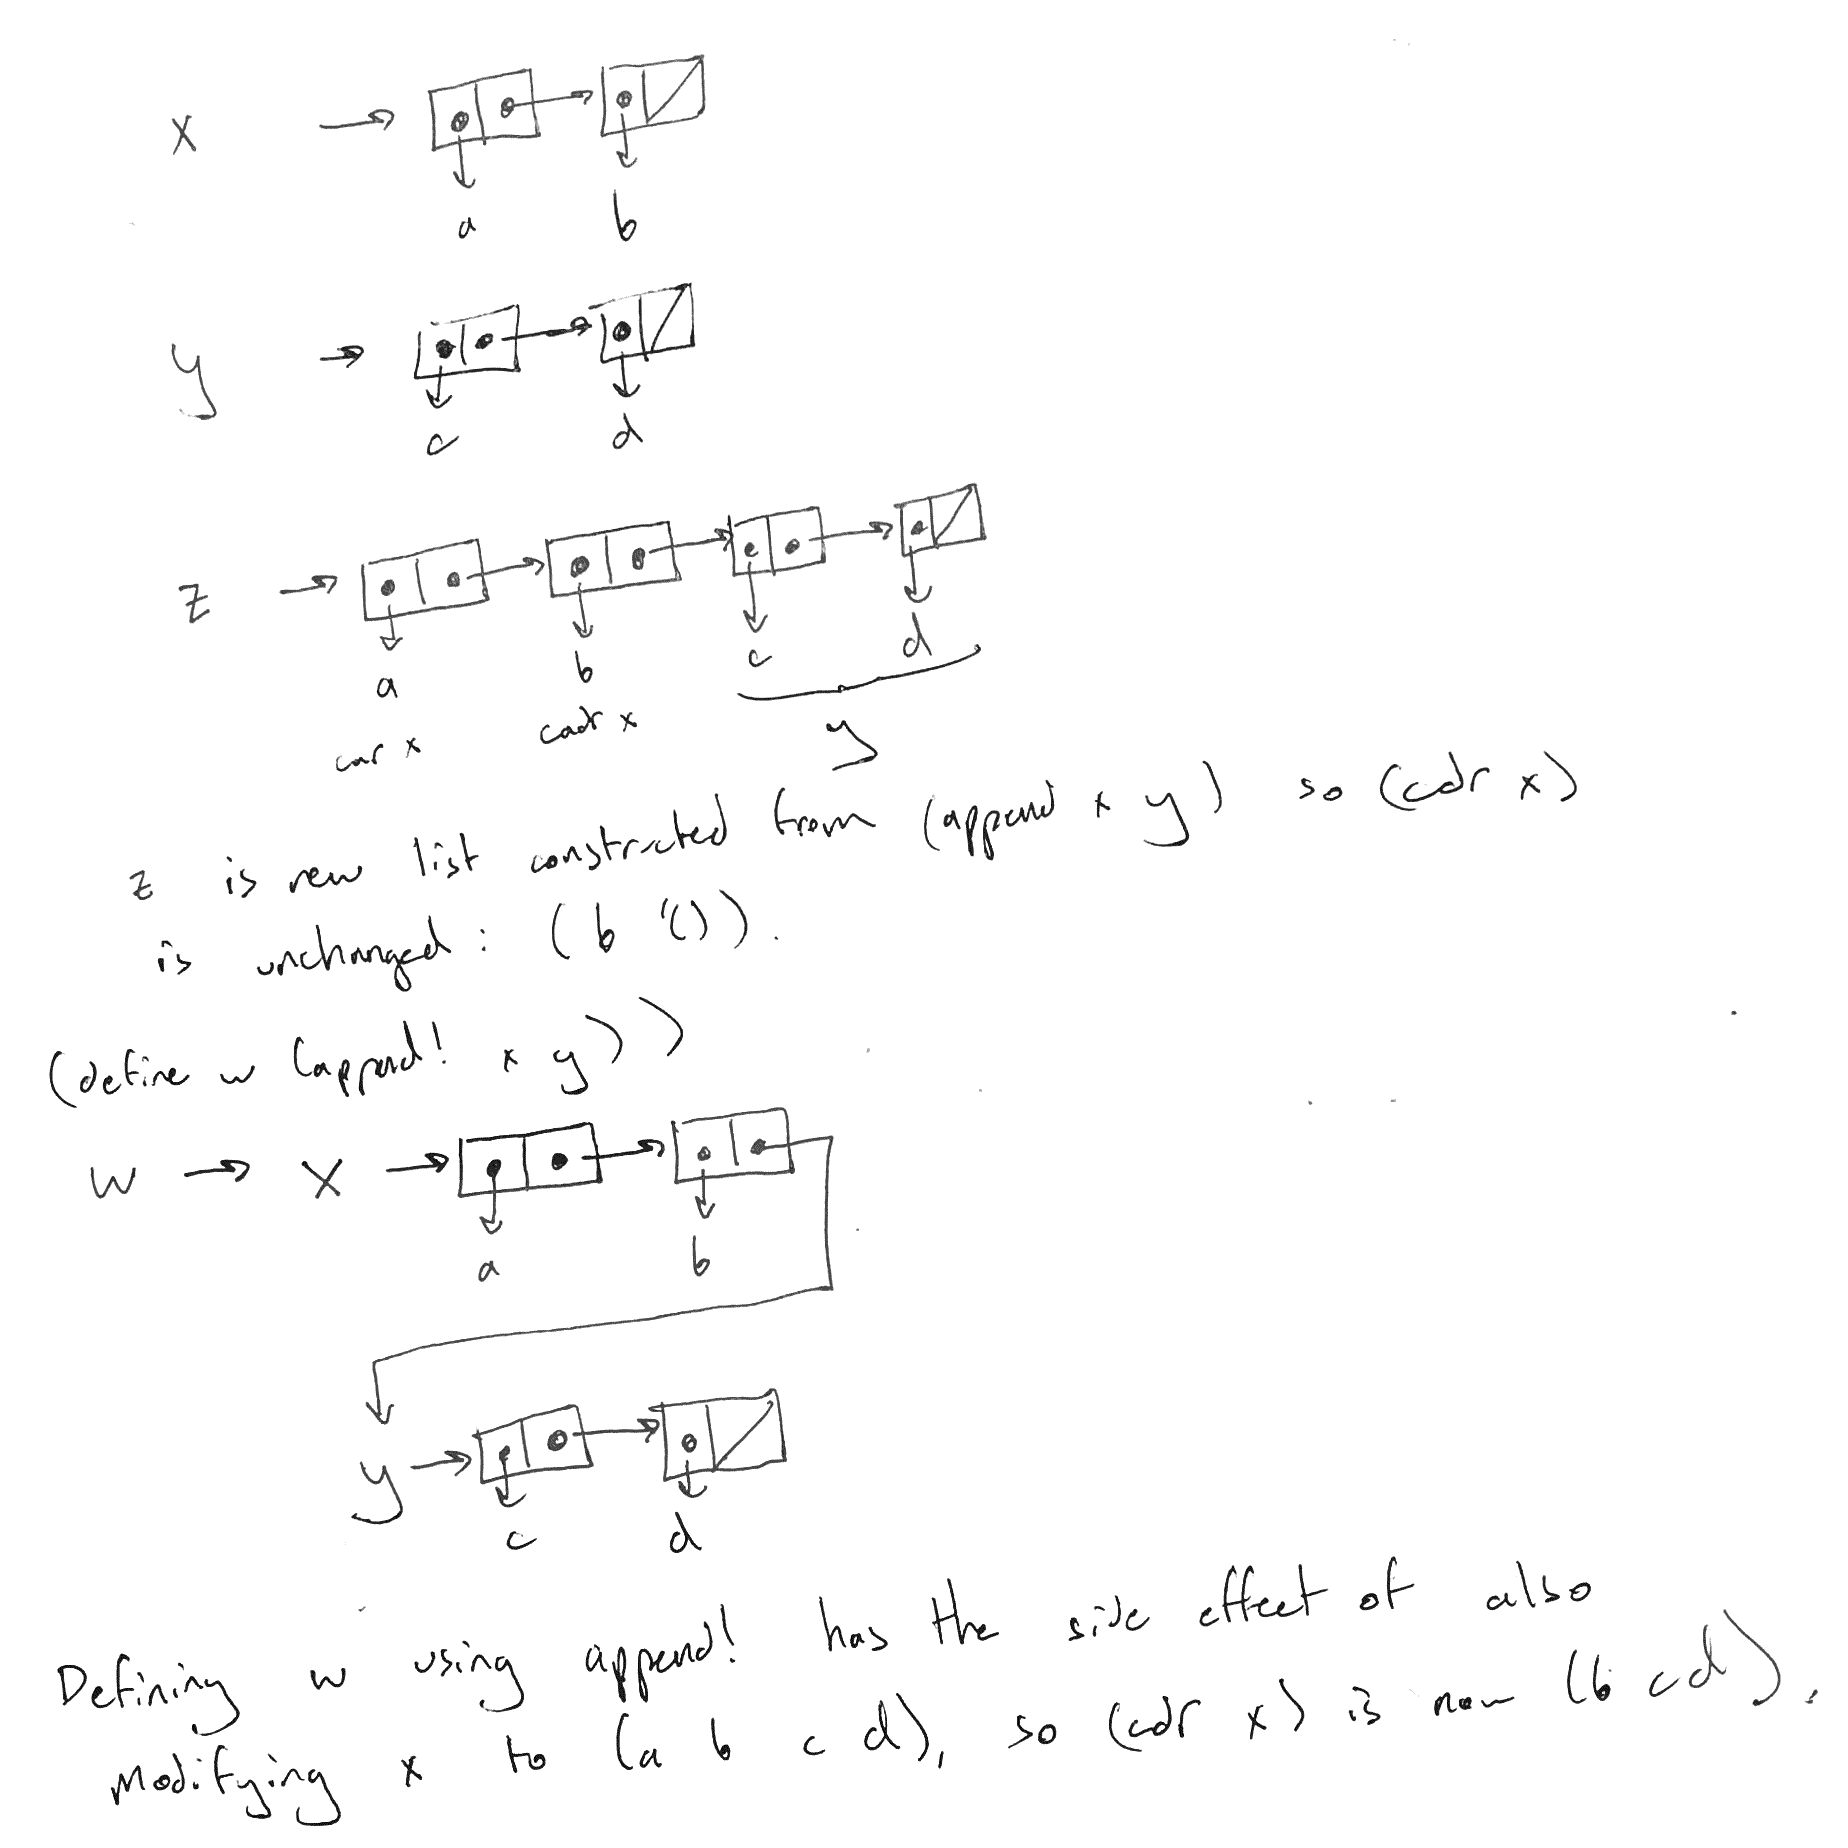 x
a b
y
c d
z
a b c d
car x cadr x y
z is new list constructed from (append x y) so (cdr x)
is unchanged: (b '()).
(define w (append! x y))
w x
a b
y
c d
Defining w using append! has the side effect of also
modifying x to (a b c d), so (cdr x) is now (b c d).